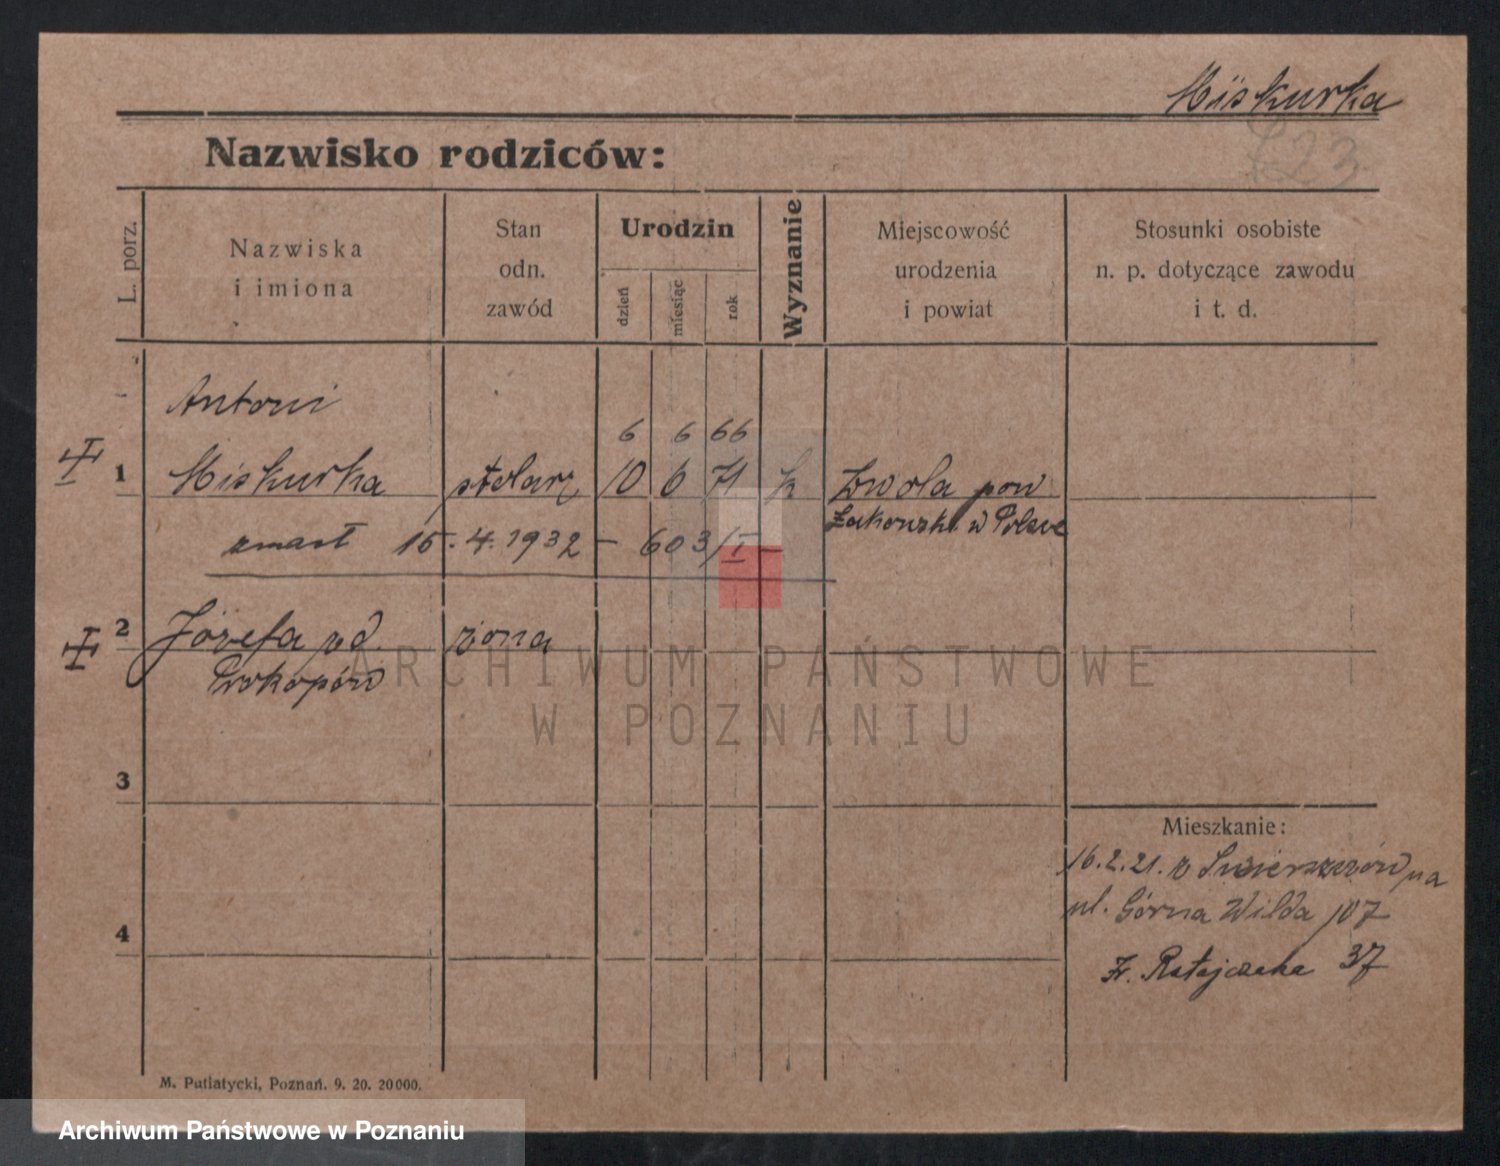 Miskurka
223
Nazwisko rodziców:
L. porz.
Nazwiska
i imiona
Stan
odn.
zawód
Urodzin
dzień
miesiąc
rok
Wyznanie
Miejscowość
urodzenia
i powiat
Stosunki osobiste
n. p. dotyczące zawodu
i t. d.
Antoni
6 6 66
1 Miskurka stolarz 10 6 71 k Zwola pow
w Polsce
zmarł 15.4.1932 – 603/I –
2 Józefa z d. żona
Prokopów
3
Mieszkanie:
16.2.21. z na
ul. Górna Wilda 107
4
Fr. Ratajczaka 37
M. Putiatycki, Poznań. 9. 20. 20000.
ARCHIWUM PAŃSTWOWE
W POZNANIU
Archiwum Państwowe w Poznaniu